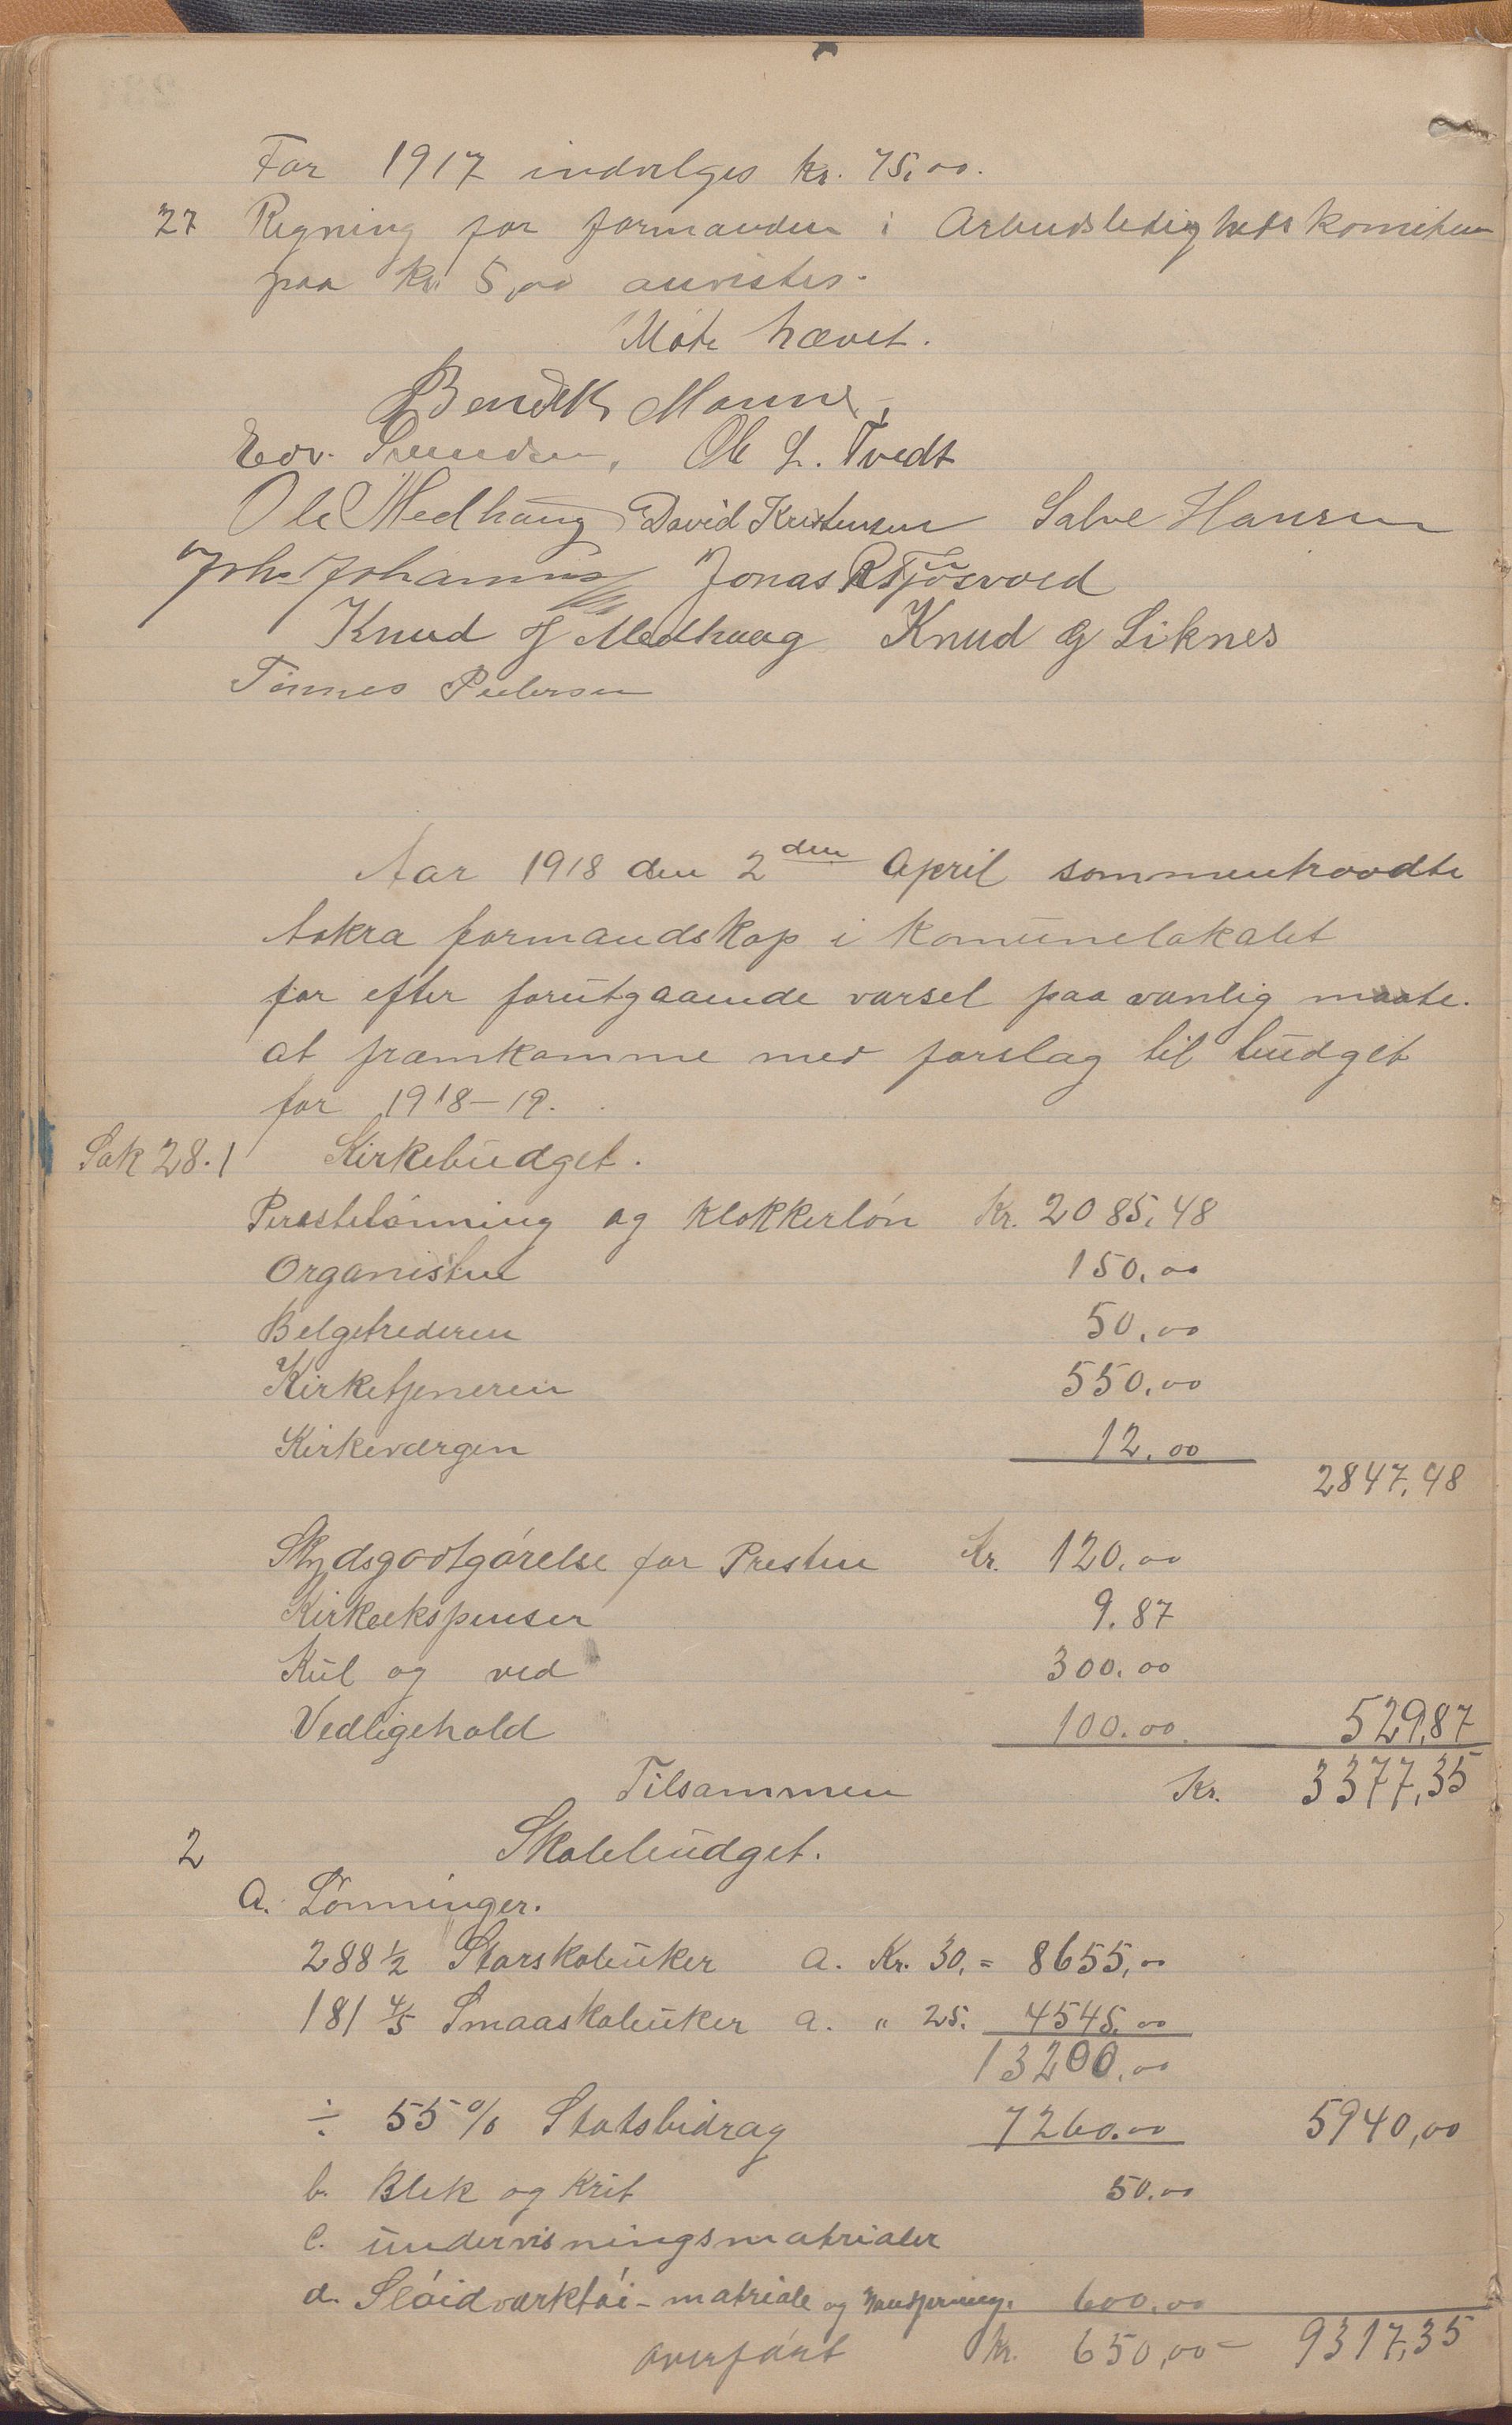 For 1917 indvilges kr. 75,00.
27 Regning for formanden i Arbeidsledighetskomiteen
paa kr 5,00 anvistes.
Møte hævet.
Bendik Manne,
Edv. Svendsen, Ole L. Tvedt
Ole Medhaug David Kristensen Salve Hansen
Johs Johannes Jonas R Tjøsvold
Knud J Medhaug Knud G Liknes
Tønnes Pedersen
Aar 1918 den 2den April sammentraadte
Aakra formandskap i komunelokalet
for efter forutgaaende varsel paa vanlig maate.
at framkomme med forslag til budget
for 1918-19.
Sak 28.1 Kirkebudget.
Prestelønning og klokkerløn Kr. 2085,48
Organisten 150,00
Belgetrederen 50,00
Kirketjeneren 550,00
Kirkeværgen 12,00
2847,48
Skydsgodtgørelse for Presten Kr. 120,00
Kirkeekspenser 9.87
Kul og ved 300.00
Vedligehold 100.00. 529,87
Tilsammen Kr. 3377,35
2 Skolebudget.
a. Lønninger.
288 1/2 Storskoleuker a. Kr. 30, = 8655,00
181 4/5 Smaaskoleuker a. " 25. 4545,00
13200,00
÷ 55% Statsbidrag 7260.00 5940,00
b. Blek og krit 50.00
c. undervisningsmatrialer
d. Sløidværktøi - matriale og 600,00
overført kr. 650,00 - 9317,35